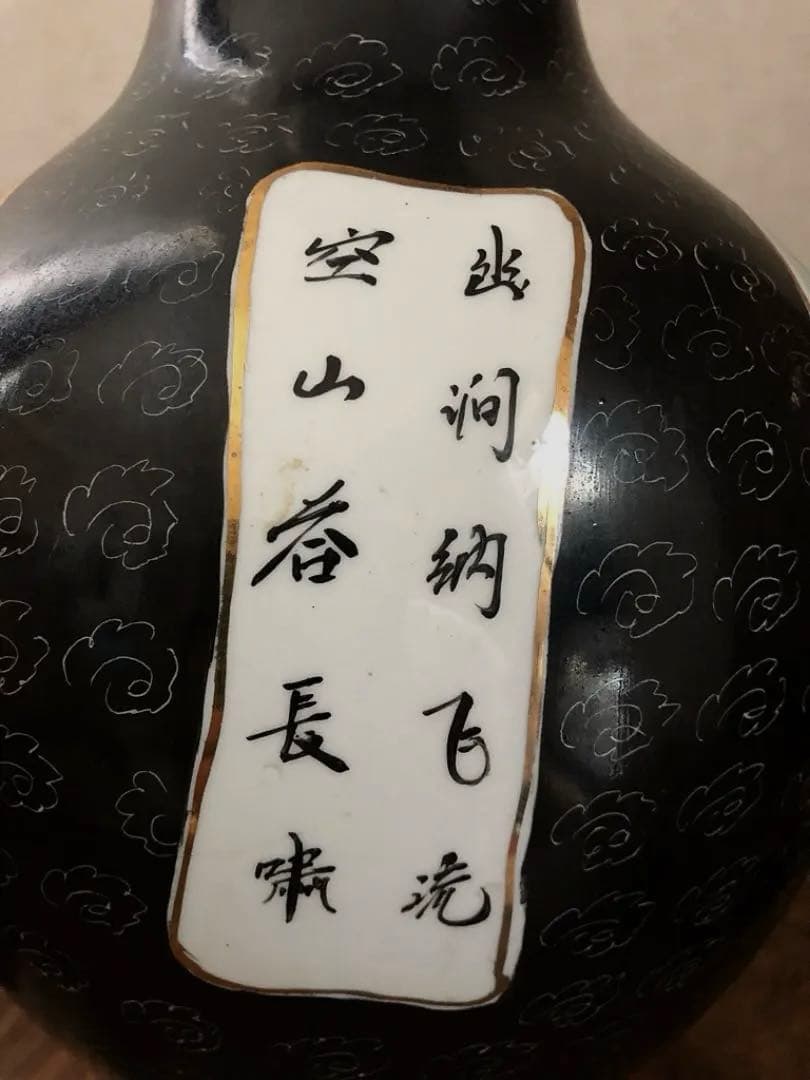 幽涧纳飞流
空山荅長嘯